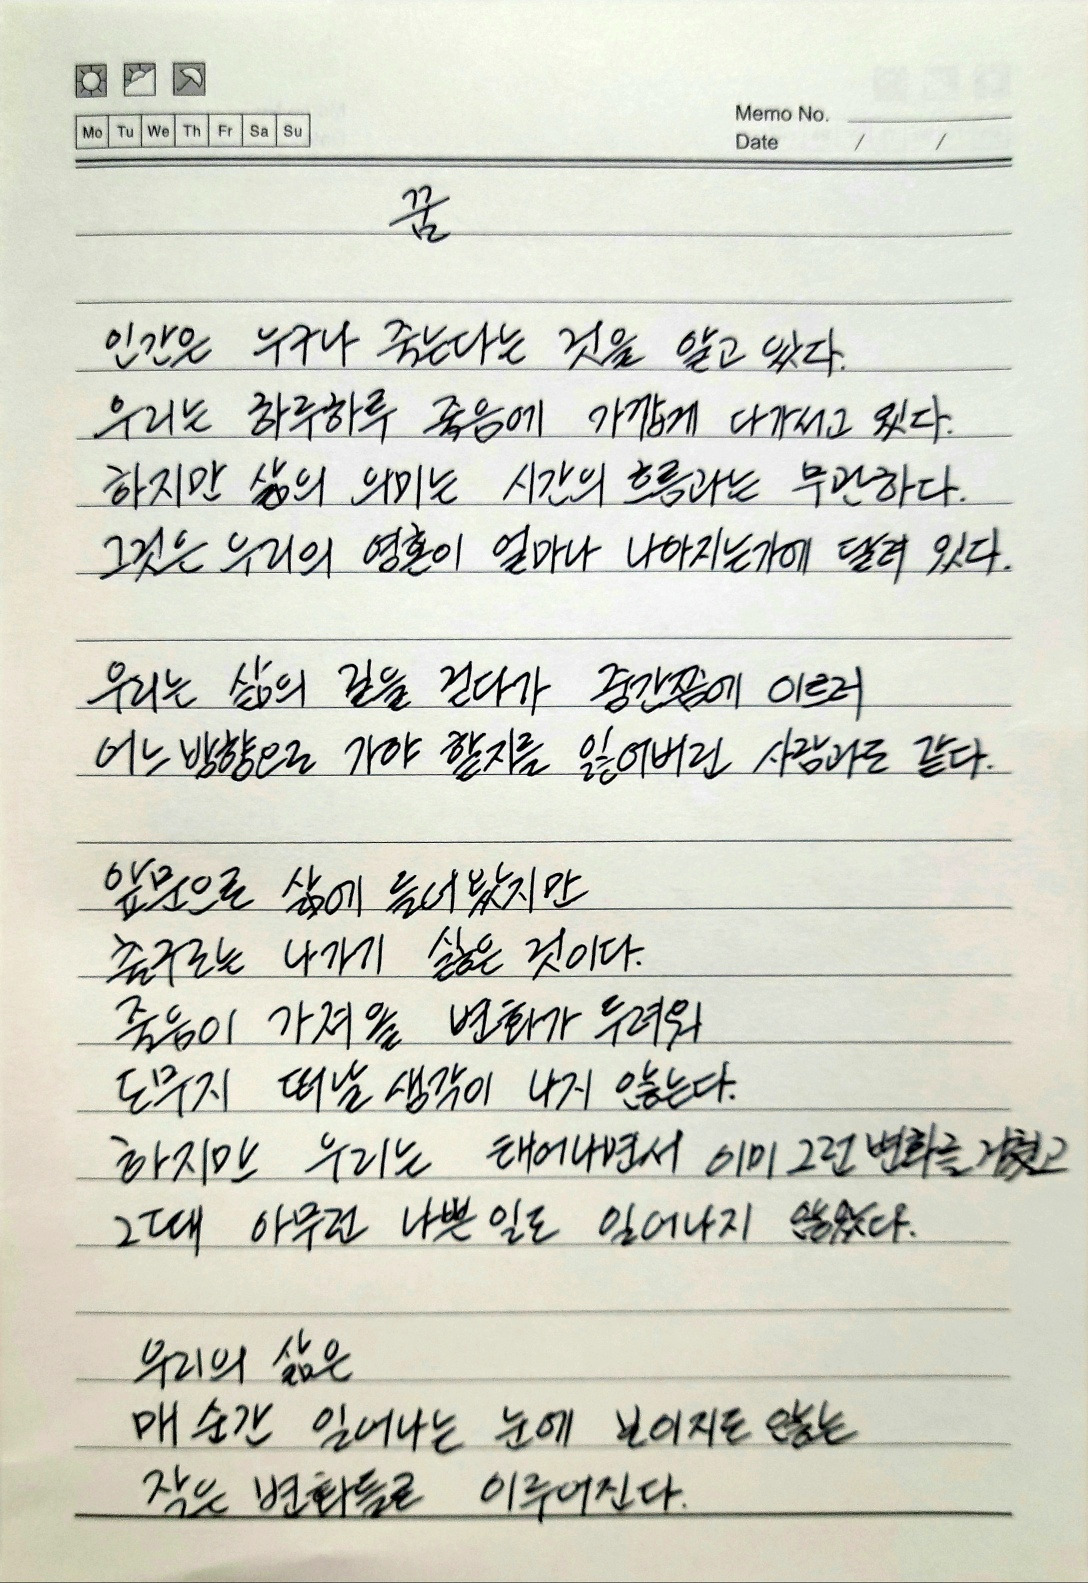 Mo Tu We Th Fr Sa Su
Memo No.
Date / /
꿈
인간은 누구나 죽는다는 것을 알고 있다.
우리는 하루하루 죽음에 가깝게 다가서고 있다.
하지만 삶의 의미는 시간의 흐름과는 무관하다.
그것은 우리의 영혼이 얼마나 나아지는가에 달려 있다.
우리는 삶의 길을 걷다가 중간쯤에 이르러
어느 방향으로 가야 할지를 잃어버린 사람과도 같다.
앞문으로 삶에 들어왔지만
출구로는 나가기 싫은 것이다.
죽음이 가져올 변화가 두려워
도무지 떠날 생각이 나지 않는다.
하지만 우리는 태어나면서 이미 그런 변화를 거쳤고
그때 아무런 나쁜 일도 일어나지 않았다.
우리의 삶은
매 순간 일어나는 눈에 보이지도 않는
작은 변화들로 이루어진다.